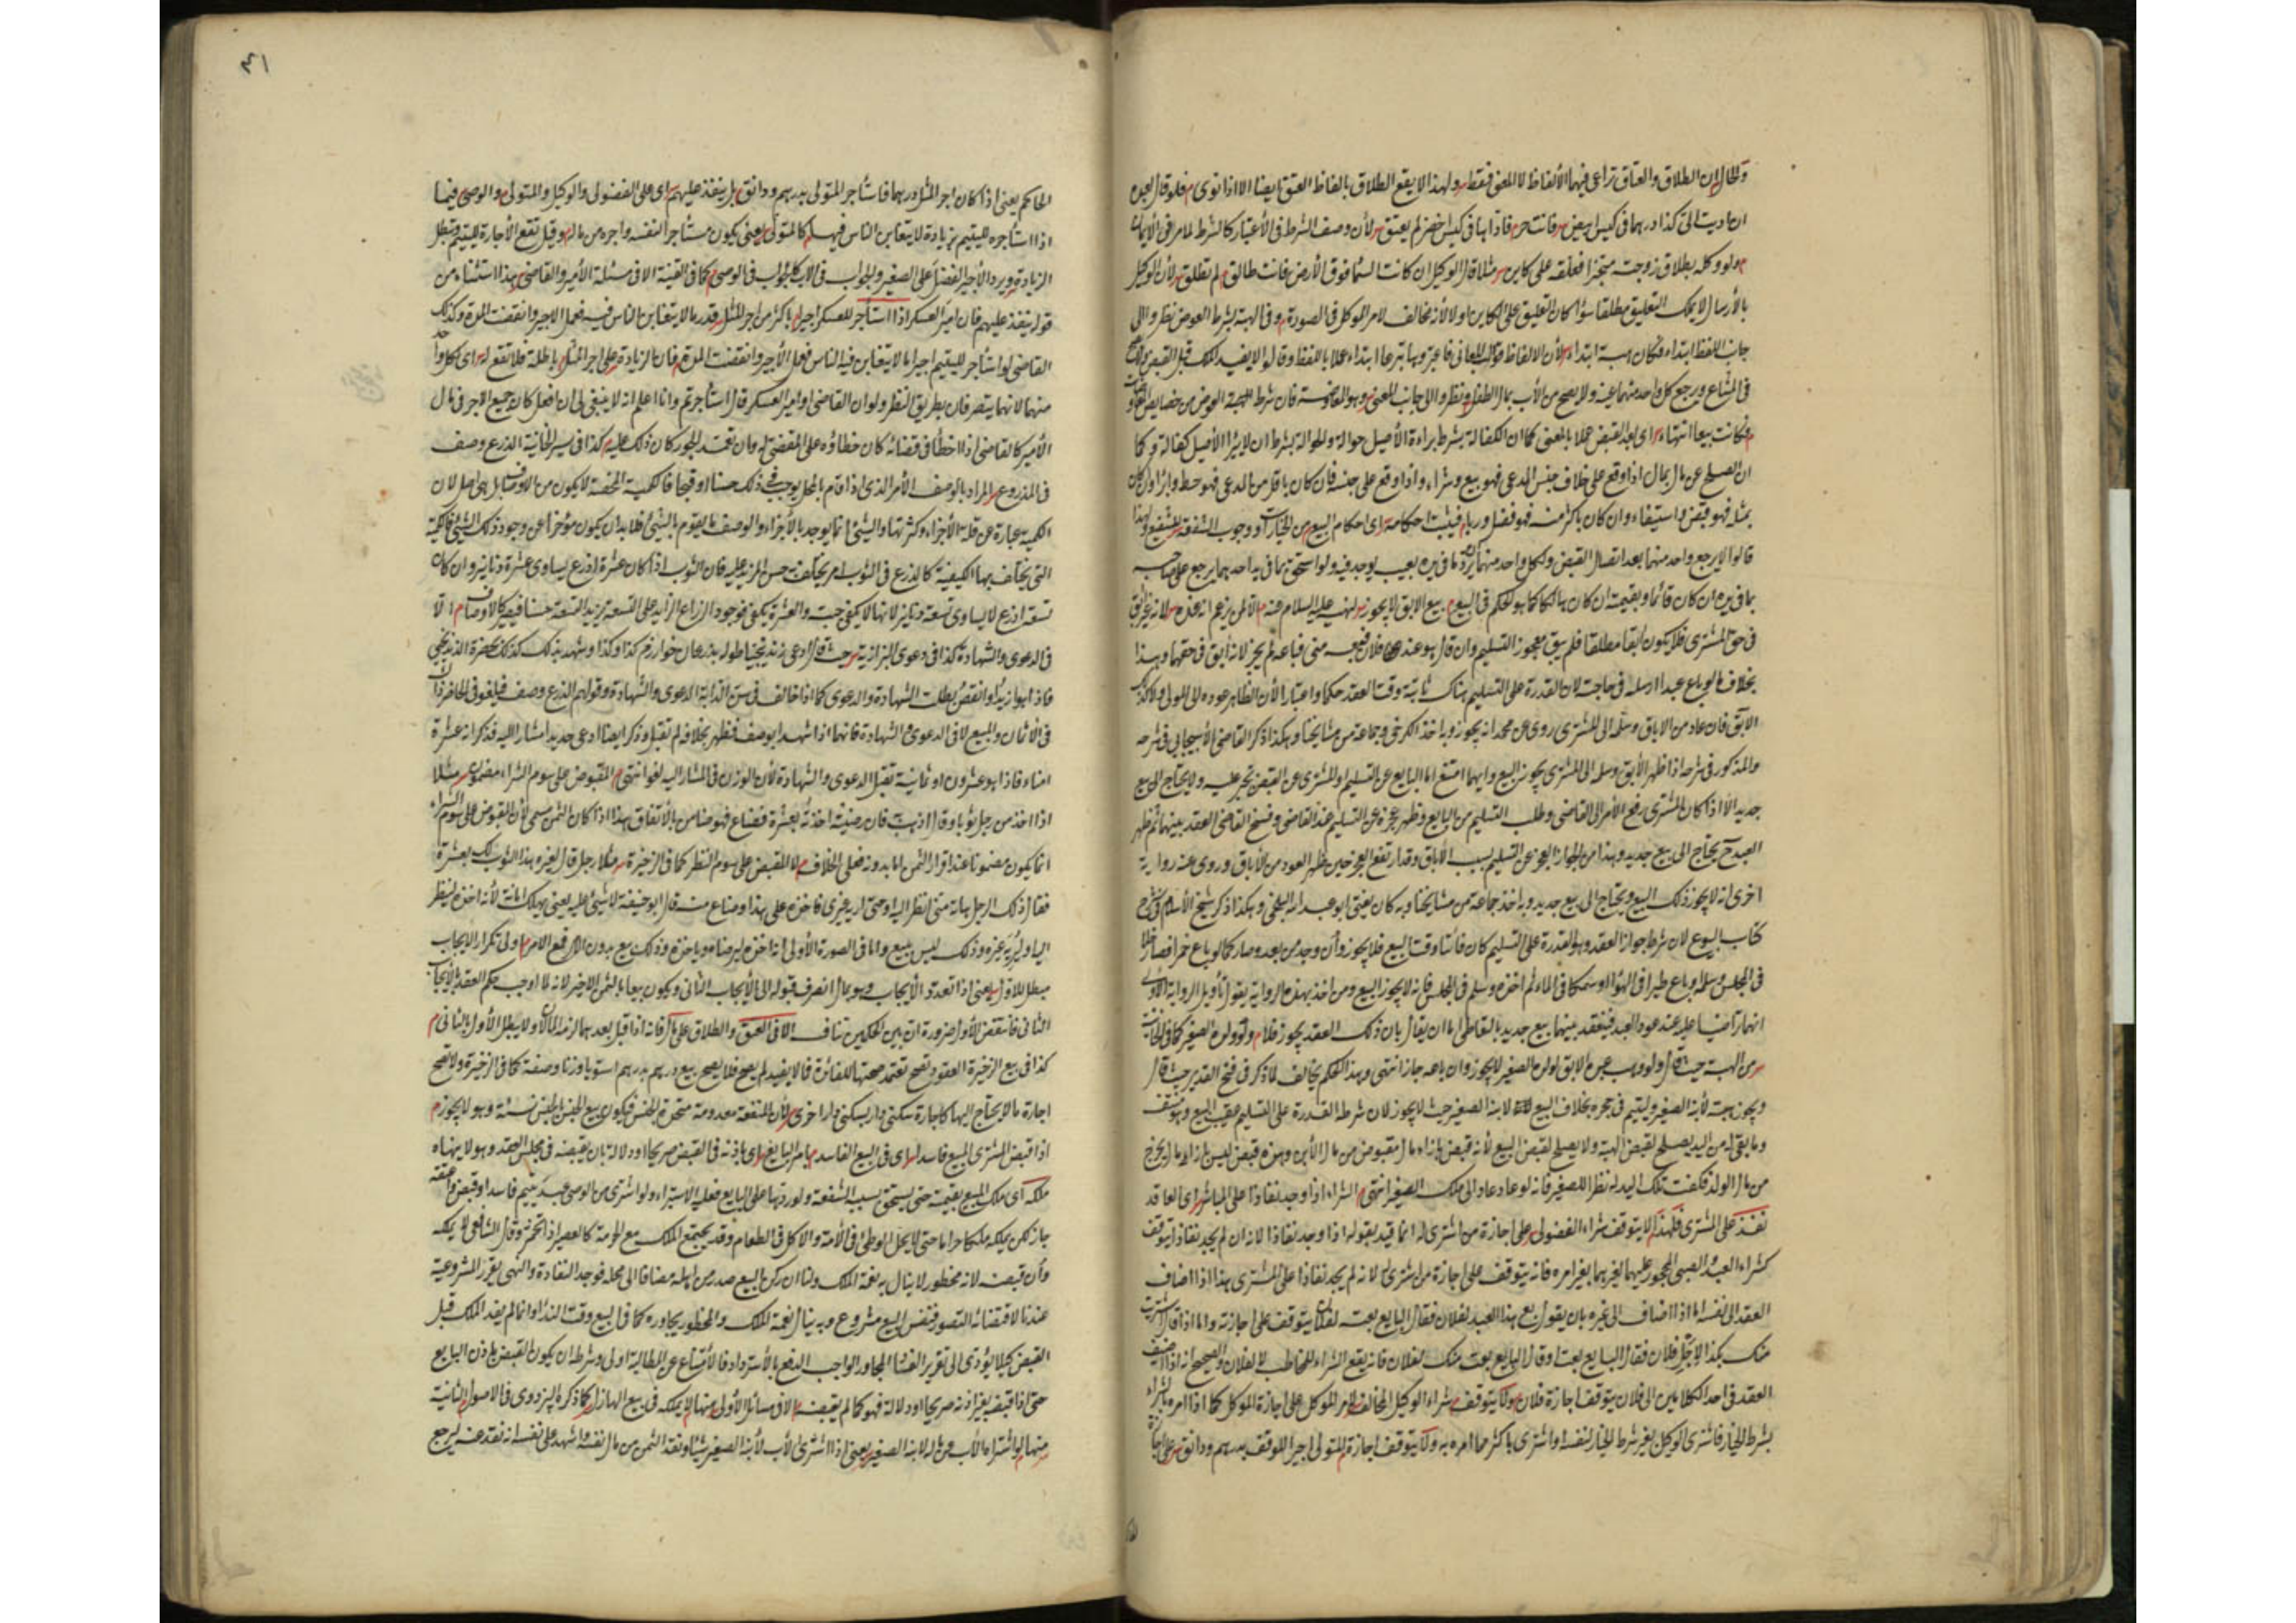 والحال ان الطلاق والعتاق تراعى فيهما الألفاظ لا المعنى فقط ولهذا لا يقع الطلاق بالفاظ العتق ايضا الا اذا نوى فلو قال لعبده
ان اديت الى كذا درهما في كيس ابيض فانت حر فاداها في كيس اخضر لم يعتق لأن وصف الشرط في الأعتبار كالشرط لما مر في الأيمان
ولو وكله بطلاق زوجته منجزا فعلقه على كاين مثلا قال الوكيل ان كانت السما فوق الأرض فانت طالق لم تطلق لأن الوكيل
بالأرسال لا يملك التعليق مطلقا سوا كان التعليق على الكاين اولا لأنه مخالف لامر الموكل في الصورة وفي الهبة بشرط العوض نظروا الى
جانب اللفظ ابتداء فكان هبة ابتداء لأن الالفاظ قوالب المعاني فاعتبروها تبرعا ابتداء عملا باللفظ وقالوا لا يفيد الملك قبل القبض
في المشاع ويرجع كل واحد منهما عنه ولا يصح من الأب بمال الطفل ونظروا الى جانب المعنى وهو المعاوضة فان شرط الهبة العوض من خصايص
فكانت بيعا انتهاء اى بعد القبض عملا بالمعنى كما ان الكفالة بشرط براءة الأصيل حوالة والحوالة بشرط ان لا يبرا الأصيل كفالة وكما
ان الصلح عن مال بمال اذا وقع على خلاف جنس المدعى فهو بيع وشراء واذا وقع على جنسه فان كان باقل من المدعى فهو حط وابراء وان كان
بمثله فهو قبض واستيفاء وان كان باكثر منه فهو فضل وربا فيثبت احكامه اى احكام البيع من الخيارات ووجوب الشفعة للشفيع ولهذا
قالوا لا يرجع واحد منهما بعد اتصال القبض ولكل واحد منهما يرد ما في يده بعيب يوجد فيه ولو استحق ما في يد احدهما يرجع على صاحبه
بما في يده ان كان قائما وبقيمته ان كان هالكا كما هو الحكم في البيع بيع الابق لا يجوز لنهيه عليه السلام عنه الا لمن يزعم انه عنده لانه غير ابق
في حق المشترى فلا يكون ابقا مطلقا فلم يبق معجوز التسليم وان قال هو عند فلان فبعه منى فباعه لم يجز لانه ابق في حقهما وهذا
بخلاف ما لو باع عبدا ارسله في حاجته لان القدرة على التسليم هناك ثابتة وقت العقد حكما واعتبارا لأن الظاهر عوده الى المولى ولا كذلك
الابق فان عاد من الاباق وسلمه الى المشترى روى عن محمد انه يجوز وبه اخذ الكرخي وجماعة من مشايخنا وهكذا ذكر القاضي الأسبيجابي في شرحه
والمذكور في شرحه اذا ظهر الأبق وسلمه الى المشترى يجوز البيع وايهما امتنع اما البايع عن التسليم او المشترى عن القبض يجبر عليه ولا يحتاج الى بيع
جديد الا اذا كان المشترى رفع الأمر الى القاضي وطلب التسليم من البايع وظهر عجزه عن التسليم عند القاضي وفسخ القاضي العقد بينهما ثم ظهر
العبد ح يحتاج الى بيع جديد وهذا من الجواز العجز عن التسليم بسبب الأباق وقد ارتفع العجز حين ظهر العود من الأباق وروى عنه رواية
اخرى انه لا يجوز ذلك البيع ويحتاج الى بيع جديد وبه اخذ جماعة من مشايخنا وبه كان يفتى ابو عبد الله البلخي وهكذا ذكر شيخ الأسلام في شرح
كتاب البيوع لان شرط جواز العقد وهو القدرة على التسليم كان فائتا وقت البيع فلا يجوز وان وجد من بعد وصار كما لو باع خمرا فصار خلا
في المجلس وسلمه وباع طيرا في الهواء او سمكا في الماء ثم اخذه وسلم في المجلس فانه لا يجوز البيع ومن اخذ بهذه الرواية يقول تأويل الرواية الأولى
انهما تراضيا عليه عند عود العبد فينعقد بينهما بيع جديد بالتعاطى اما ان يقال بان ذلك العقد يجوز فلا ولو لولده الصغير كما في الخانية
من الهبة حيث قال ولو وهب عبده الابق لولده الصغير لا يجوز وان باعه جاز انتهى وهذا الحكم يخالف لما ذكر في فتح القدير حيث قال
ويجوز هبته لأبنه الصغير وليتيم في حجره بخلاف البيع لابنه الصغير حيث لا يجوز لان شرط القدرة على التسليم عقيب البيع وهو منتف
وما بقى له من اليد يصلح لقبض الهبة ولا يصلح لقبض البيع لأنه قبض بازاء مال مقبوض من مال الأبن وهذه قبض ليس بازاءه مال يخرج
من مال الولد فكفت تلك اليد له نظرا للصغير فانه لو عاد عاد الى ملك الصغير انتهى الشراء اذا وجد نفاذا على المباشر اى العاقد
نفذ على المشترى فلهذا لا يتوقف شراء الفضولى على اجازة من اشترى له انما قيد بقوله اذا وجد نفاذا لانه ان لم يجد نفاذا يتوقف
كشراء العبد والصبى المحجور عليهما لغيرهما بغير امره فانه يتوقف على اجازة من اشترى له لانه لم يجد نفاذا على المشترى هذا اذا اضاف
العقد الى نفسه اما اذا اضاف الى غيره بان يقول بع هذا العبد لفلان فقال البايع بعته لفلان يتوقف على اجازته واما اذا قال اشتريت
منك بكذا لاجل فلان فقال البايع بعت او قال البايع بعت منك لفلان فانه يقع الشراء للمخاطب لا لفلان والصحيح انه اذا اضيف
العقد في احد الكلامين الى فلان يتوقف اجازة فلان ولا يتوقف شراء الوكيل المخالف لامر الموكل على اجازة الموكل كما اذا امره بالشراء
بشرط الخيار فاشترى الوكيل بغير شرط الخيار لنفسه او اشترى باكثر مما امره به ولا يتوقف اجازة المتولى اجيرا للوقف بدرهم ودانق على
الحاكم يعنى اذا كان اجر المثل درهما فاستأجر المتولى بدرهم ودانق بل ينفذ عليهم اى على الفضولى والوكيل والمتولى والوصى فيما
اذا استأجره لليتيم بزيادة لا يتغابن الناس فيه كالمتولى يعنى يكون مستأجرا لنفسه واجره من ماله وقيل تقع الأجارة لليتيم وتبطل
الزيادة ويرد الأجير الفضل على الصغير والجواب في الاب كالجواب في الوصى كما في القنية الا في مسئلة الأمير والقاضى هذا استثناء من
قوله ينفذ عليهم فان امير العسكر اذا استأجر للعسكر اجيرا باكثر من اجر المثل قدر ما لا يتغابن الناس فيه فعمل الاجير وانقضت المدة وكذلك
القاضى لو استأجر لليتيم اجيرا بما لا يتغابن فيه الناس ففعل الأجير وانقضت المدة فان الزيادة على اجر المثل باطلة فلا تقع له اى لكل واحد
منهما لانهما يتصرفان بطريق النظر ولو ان القاضى او امير العسكر قال استأجرته وانا اعلم انه لا ينبغى لى ان افعل كان جميع الاجر في مال
الأمير كالقاضى اذا اخطأ في قضائه كان خطاؤه على المقضى له وان تعمد الجور كان ذلك عليه كذا في سير الخانية الذرع وصف
في المذروع المراد بالوصف الأمر الذى اذا قام بالمحل يوجب في ذلك حسنا او قبحا فالكمية المحضة لا يكون من الاوصاف بل هى اصل لان
الكمية عبارة عن قلة الأجزاء وكثرتها والشيئ انما يوجد بالأجزاء والوصف ما يقوم بالشيئ فلا بد ان يكون مؤخرا عن وجود ذلك الشيئ فالكمية
التى يختلف بها الكيفية كالذرع في الثوب امر يختلف به حسن المزيد عليه فان الثوب اذا كان عشرة اذرع يساوى عشرة دنانير وان كان
تسعة اذرع لا يساوى تسعة دنانير لانها لا يكفى جبة والعشرة يكفى فوجود الذراع الزايد على التسعة يزيد التسعة حسنا فيصير كالاوصاف الا
في الدعوى والشهادة كذا في دعوى البزازية حيث قال ادعى زندنيجيا طوله بذرعان خوارزم كذا وكذا وشهد بذلك كذلك بحضرة الزندنيجى
فاذا هو ازيد او انقص بطلت الشهادة والدعوى كما اذا خالف في سن الدابة الدعوى والشهادة وقولهم الذرع وصف فيلغو في الحاضر ذاك
في الأثمان والمبيع لا في الدعوى والشهادة فانهما اذا شهدا بوصف فظهر بخلافه لم تقبل وذكر ايضا ادعى حديدا مشارا اليه فذكر انه عشرة
امناء فاذا هو عشرون او ثمانية تقبل الدعوى والشهادة لأن الوزن في المشار اليه لغو انتهى المقبوض على سوم الشراء مضمون مثلا
اذا اخذ من رجل ثوبا وقال اذهب فان رضيته اخذته بعشرة فضاع فهو ضامن بالأتفاق هذا اذا كان الثمن مسمى لأن المقبوض على سوم الشراء
انما يكون مضمونا عند اقرار الثمن اما بدونه فعلى الخلاف لا المقبض على سوم النظر كما في الذخيرة مثلا رجل قال لغيره هذا الثوب لك بعشرة
فقال ذلك الرجل هاته منى انظر اليه او حتى اريه غيرى فاخذه على هذا وضاع منه قال ابو حنيفة لا شيئ عليه يعنى يهلك امانة لأنه اخذه لينظر
اليه او ليريه غيره وذلك ليس ببيع واما في الصورة الأولى انه اخذه ليرضاه وياخذه وذلك بيع بدون الامر فمع الامر اولى تكرار الايجاب
مبطل للاول يعنى اذا تعدد الأيجاب وهو بمال انصرف قبوله الى الأيجاب الثانى ويكون بيعا بالثمن الاخير لانه لما اوجب حكم العقد بالايجاب
الثانى فانتقض الأول ضرورة ان بين الحكمين تناف الا في العتق والطلاق على مال فانه اذا قبل بعدهما لزمه المالان ولا يبطل الأول بالثانى
كذا في بيع الذخيرة العقود تصح تعتمد صحتها للفائدة فما لا يفيد لم يصح فلا يصح بيع درهم بدرهم استويا وزنا وصفة كما في الذخيرة ولا تصح
اجارة ما لا يحتاج اليها كاجارة سكنى دار بسكنى دار اخرى لأن المنفعة معدومة متحدة الجنس فيكون بيع الجنس بالجنس نسئة وهو لا يجوز
اذا قبض المشترى المبيع فاسدا اى في البيع الفاسد بامر البايع اى باذنه في القبض صريحا او دلالة بان يقبضه في مجلس العقد وهو لا ينهاه
ملكه اى ملك المبيع بقيمته حتى يستحق بسبب الشفعة ولو ردها على البايع فعليه الاستبراء ولو اشترى من الوصى عبد يتيم فاسدا وقبضه واعتقه
جاز لكن يملكه ملكا حراما حتى لا يحل الوطئ في الأمة والاكل في الطعام وقد يجتمع الملك مع الحرمة كالعصير اذا تخمر وقال الشافعى لا يملكه
وان قبضه لانه محظور لا ينال به نعمة الملك ولنا ان ركن البيع صدر من اهله مضافا الى محله فوجد النفادة والنهى يقرر المشروعية
عندنا لاقتضائه التصور فنفس البيع مشروع وبه ينال نعمة الملك والمحظور يجاوره كما في البيع وقت النداء وانما لم يفد الملك قبل
القبض كيلا يؤدى الى تقرير الفساد المجاور الواجب الدفع بالأسترداد فالأمتناع عن المطالبة اولى وشرطه ان يكون القبض باذن البايع
حتى اذا قبضه بغير اذنه صريحا او دلالة فهو كما لم يقبضه الا في مسائل الأولى منها لا يملكه في بيع الهازل كما ذكره البزدوى في الاصول الثانية
منها لو اشتراه الأب من ماله لابنه الصغير يعنى اذا اشترى الأب لأبنه الصغير شيئا ونقد الثمن من مال نفسه واشهد على نفسه انه نقد عنه ليرجع